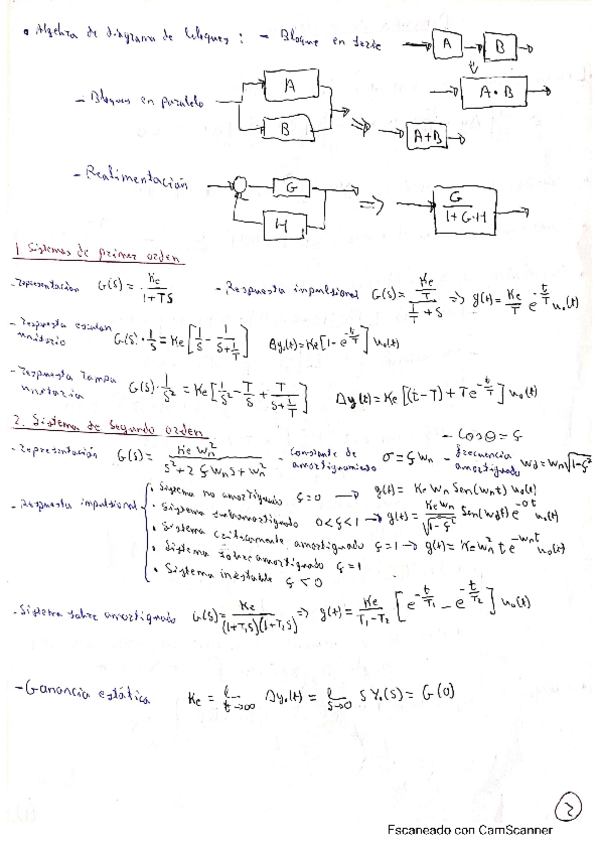 • Algebra de diagrama de bloques : - Bloque en serie A B
A · B
- Bloques en paralelo A B ⇒ A+B
- Realimentación G H ⇒ G / 1+G·H
1 Sistemas de primer orden
- Representación G(s) = Ke / 1+Ts - Respuesta impulsional G(s) = (Ke/T) / (1/T + s) ⇒ g(t) = Ke/T e^(-t/T) u₀(t)
- Respuesta escalon unitario G(s)·1/s = Ke[1/s - 1/(s+1/T)] Δy₁(t) = Ke[1 - e^(-t/T)] u₀(t)
- Respuesta rampa unitaria G(s)·1/s² = Ke[1/s² - T/s + T/(s+1/T)] Δy(t) = Ke[(t-T) + Te^(-t/T)] u₀(t)
2. Sistema de Segundo orden
- Cosθ = ς
- Representación G(s) = Ke Wn² / s²+2ςWn s+Wn² - Constante de amortiguamiento σ = ςWn - frecuencia amortiguada Wd = Wn√1-ς²
- Respuesta impulsional
• Sistema no amortiguado ς=0 → g(t) = Ke Wn Sen(Wn t) u₀(t)
• Sistema subamortiguado 0<ς<1 → g(t) = Ke Wn / √1-ς² Sen(Wd t) e^(-σt) u₀(t)
• Sistema criticamente amortiguado ς=1 → g(t) = Ke Wn² t e^(-Wn t) u₀(t)
• Sistema sobreamortiguado ς=1
• Sistema inestable ς<0
- Sistema sobre amortiguado G(s) = Ke / (1+T₁s)(1+T₂s) ⇒ g(t) = Ke / T₁-T₂ [e^(-t/T₁) - e^(-t/T₂)] u₀(t)
- Ganancia estática Ke = l t→∞ Δy₀(t) = l s→0 S Y₀(s) = G(0)
2
Escaneado con CamScanner